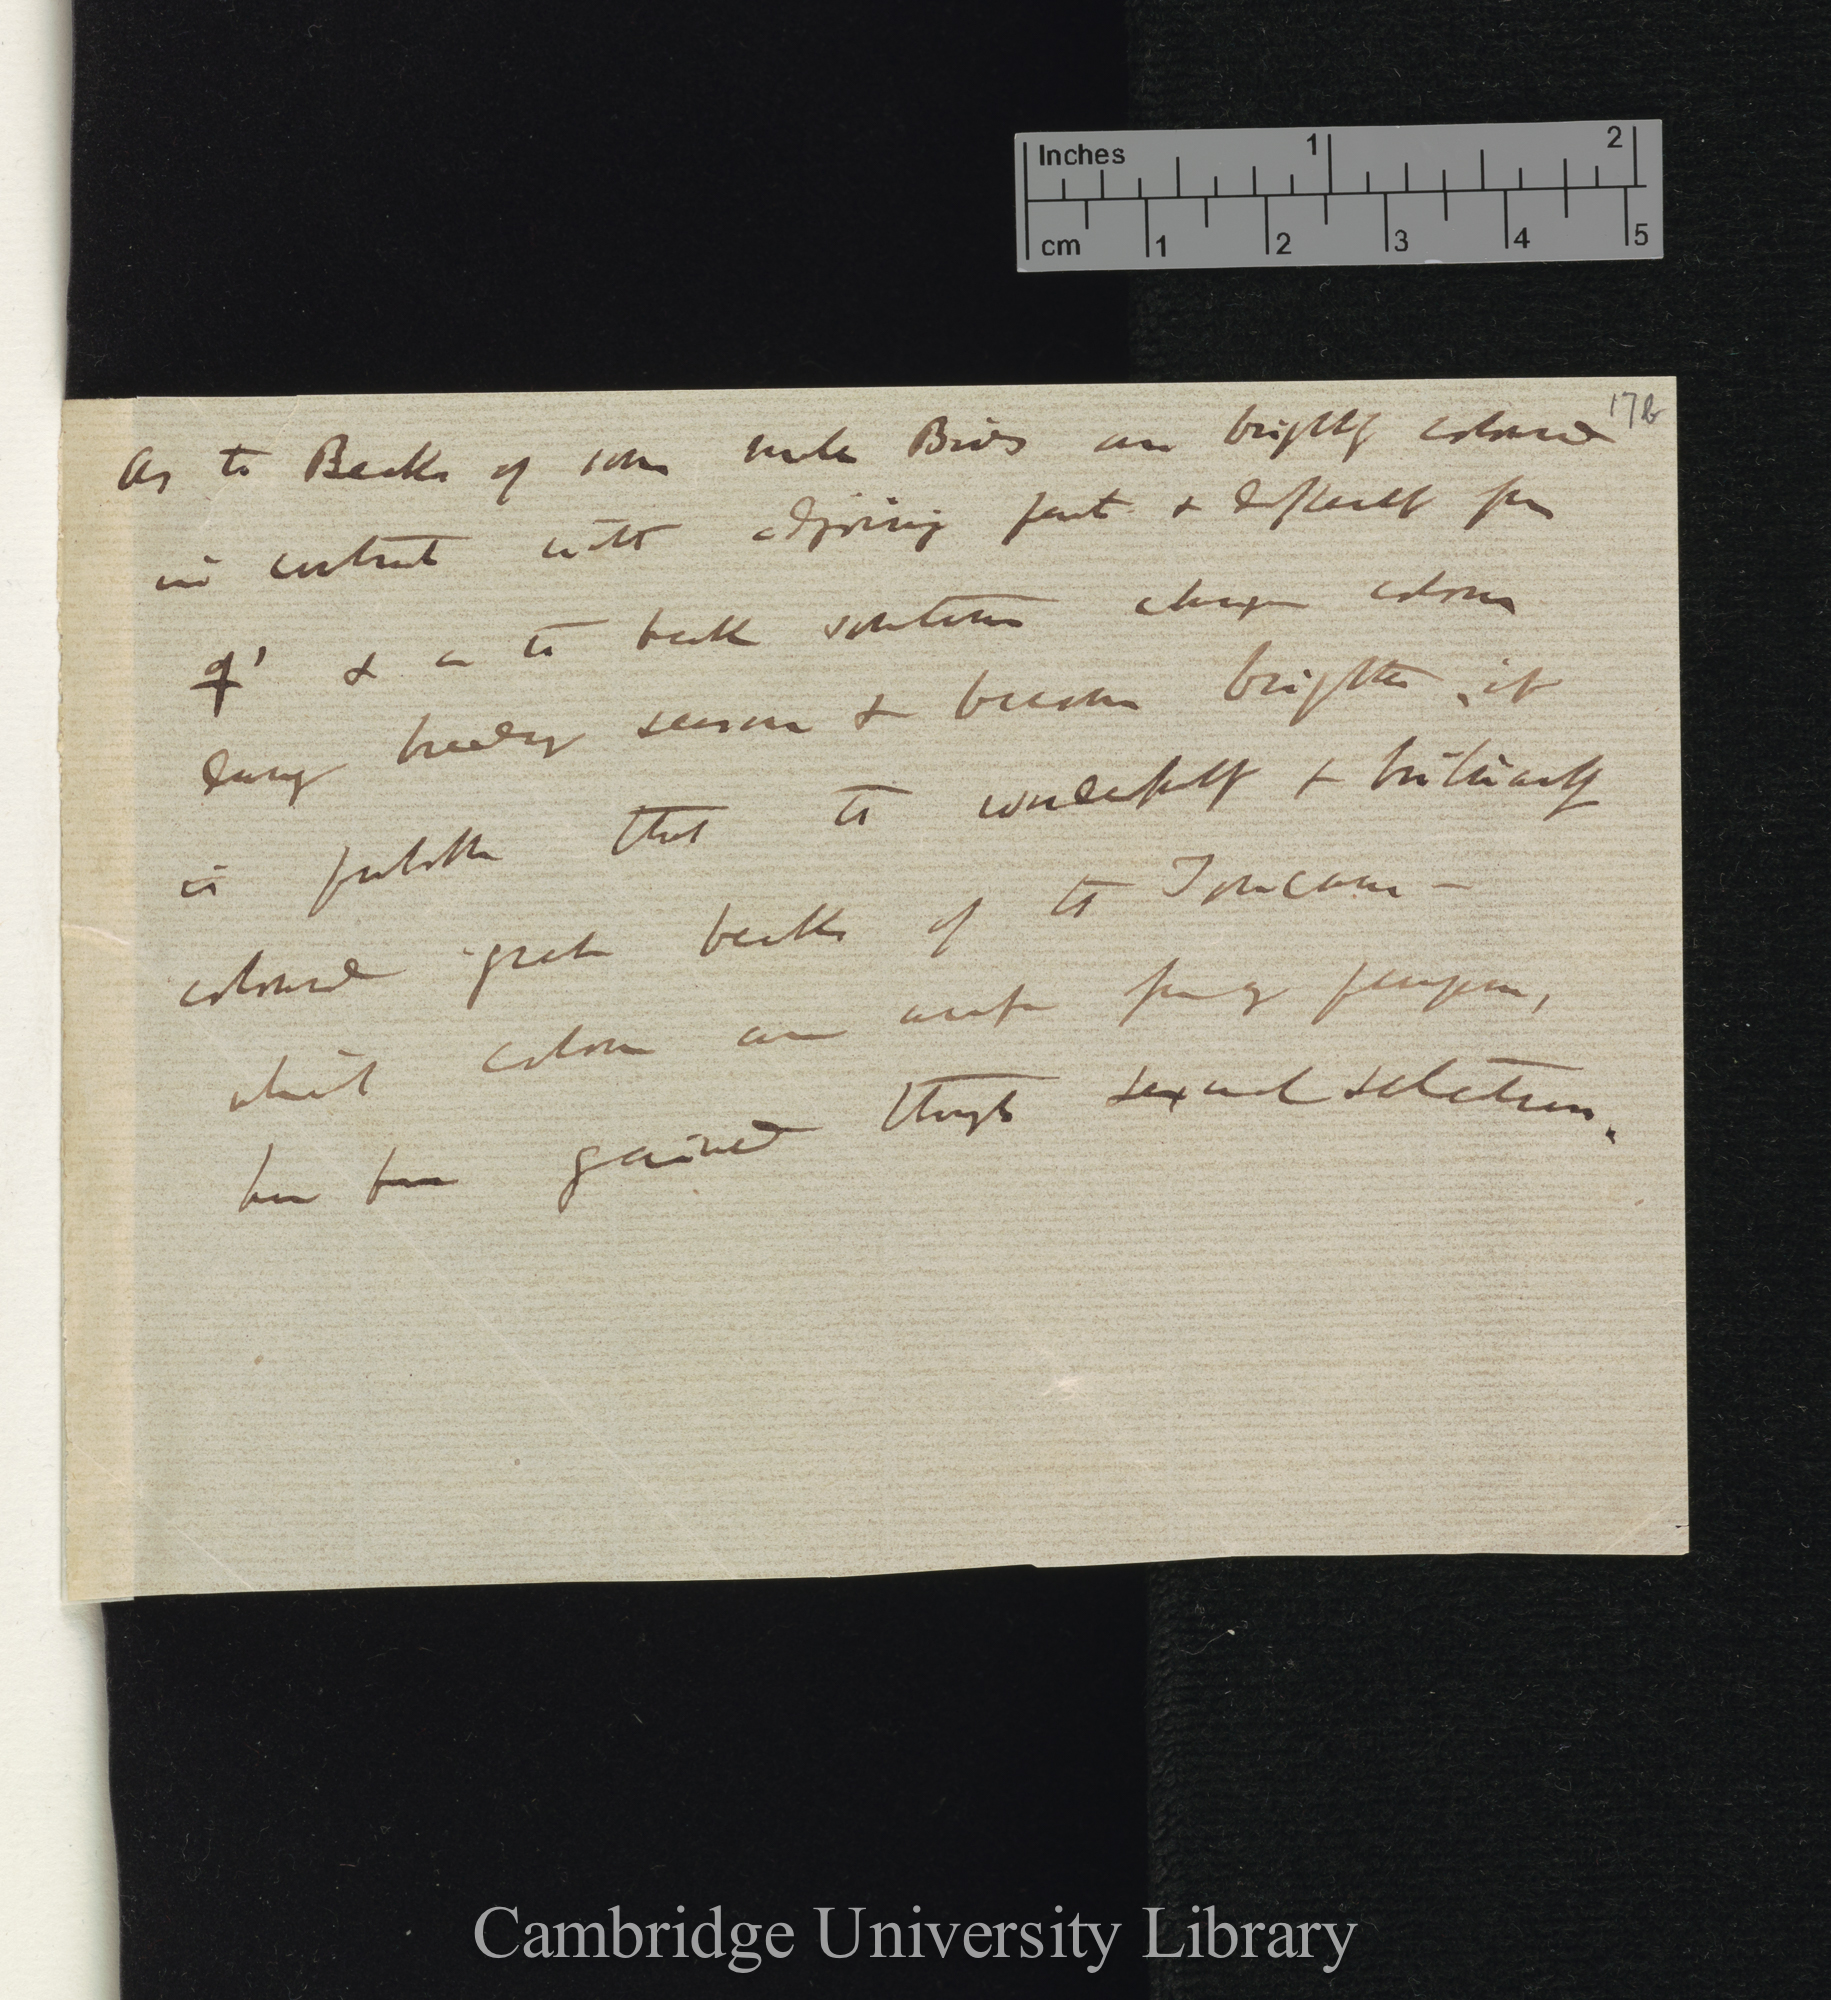 Inches 1 2
cm 1 2 3 4 5
17b
As the Beaks of some male Birds are brightly coloured
in contrast with adjoining parts & differently from
♀' & as the beak sometimes changes colour
during breeding season & becomes brighter, it
is probable that the wonderfully & brilliantly
coloured great beaks of the Toucans –
which colours are most
have been gained through sexual selection.
Cambridge University Library